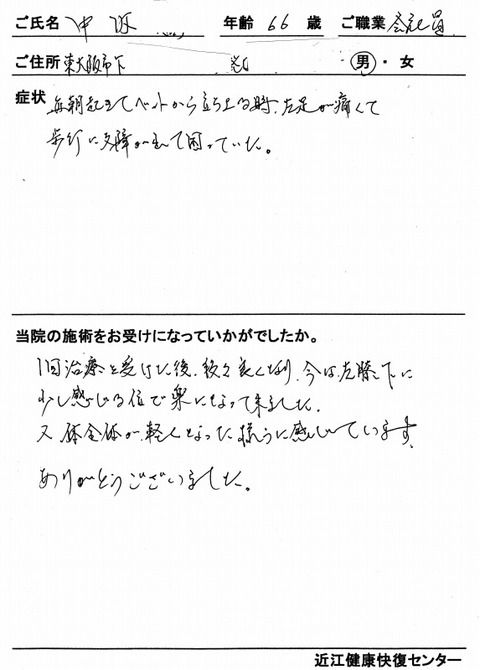 ご氏名 年齢 66 歳 ご職業 会社員
ご住所 東大阪市下 男・女
症状 毎朝起きてベットから立ち上る時、左足が痛くて
歩行に支障が出て困っていた。
当院の施術をお受けになっていかがでしたか。
1回治療を受けた後、段々良くなり、今は、左膝下に
少し感じる位で楽になって来ました。
又、体全体が、軽くなった様うに感じています。
ありがとうございました。
近江健康快復センター